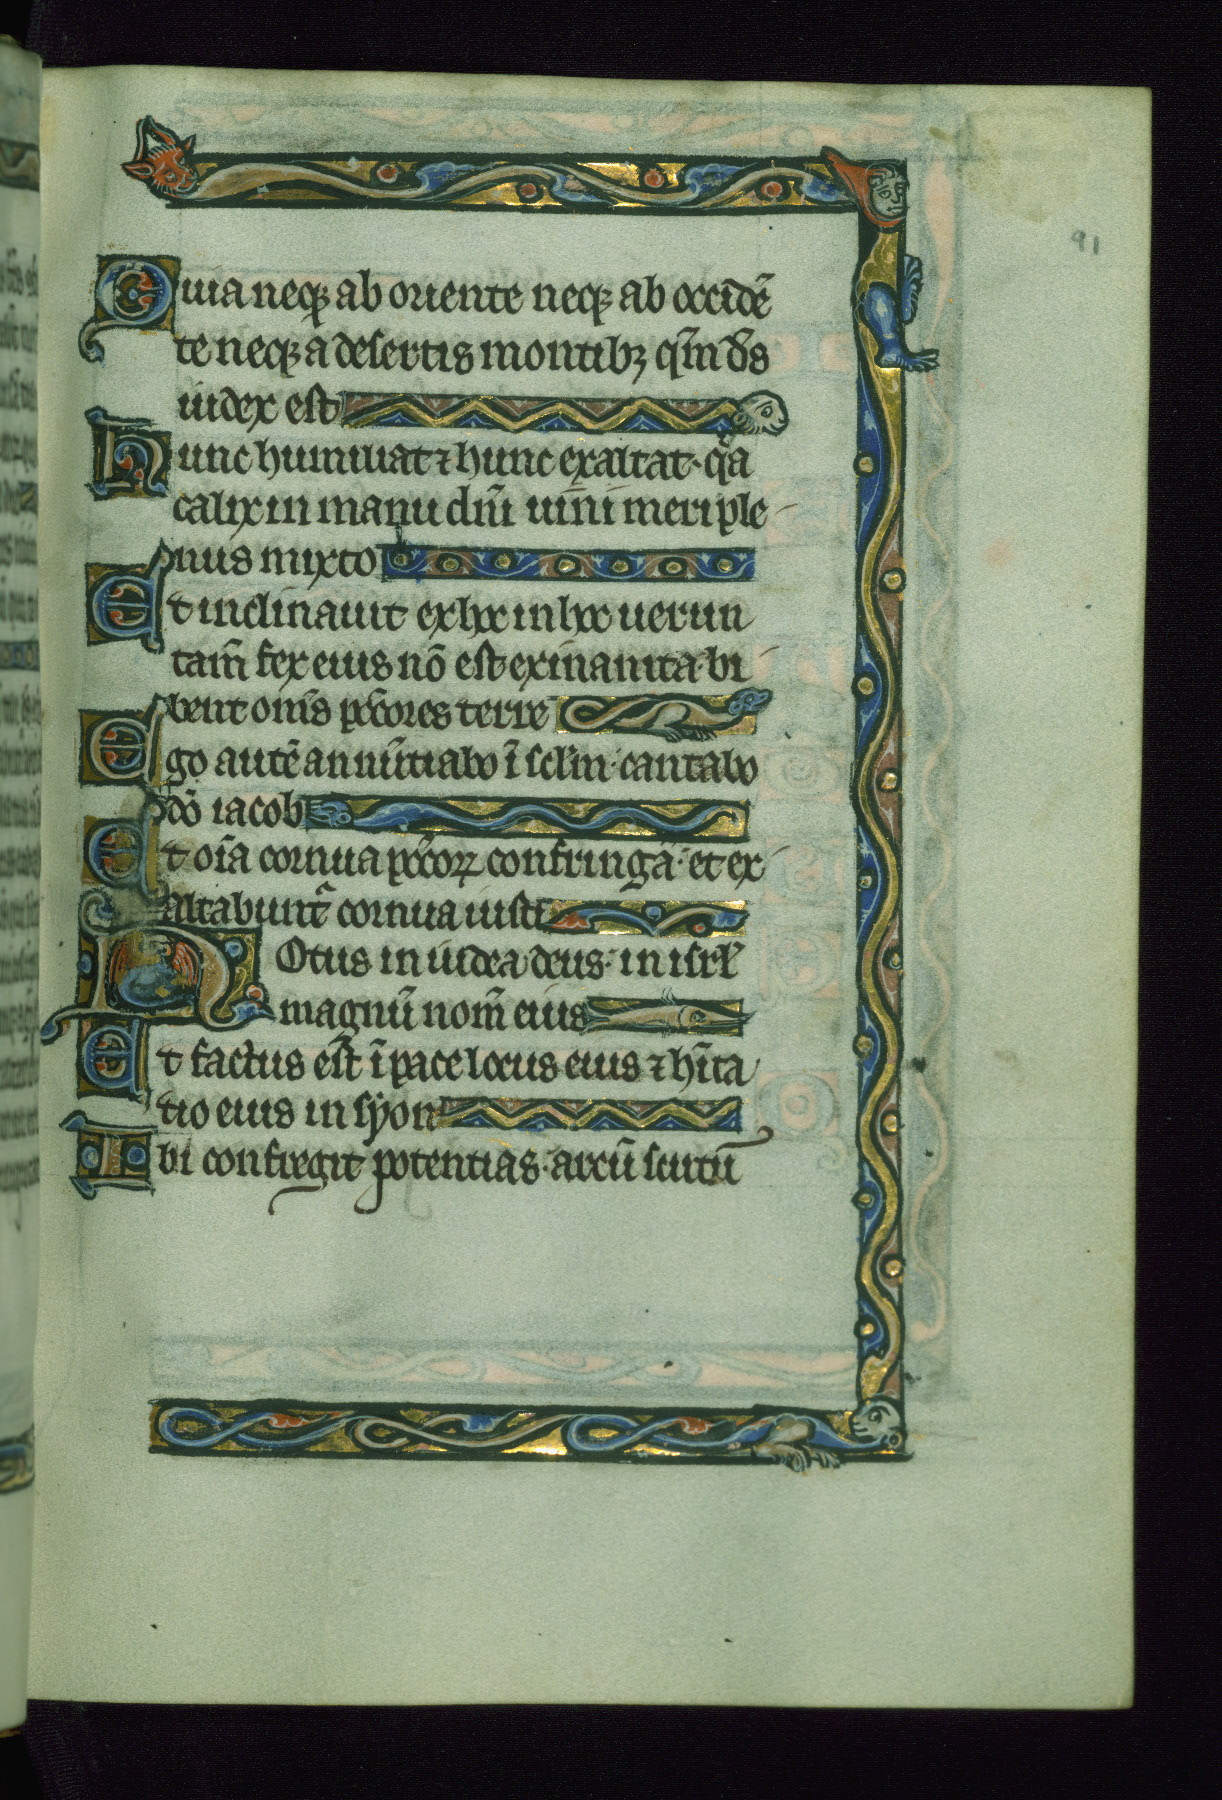 91
Quia neq; ab oriente neq; ab occidē
te neq; a desertis montib; qm̄ ds̄
iudex est
hunc humiliat ⁊ hunc exaltat· qͣa
calix in manu dnī uīni meri ple
nus mixto
Et inclinauit ex hoc in hoc uerun
tam̄ fex eius nō est exinanita· bi
bent oms̄ pccōres terre
Ego autē annūtiabo ī sclm̄· cantabo
dō iacob
Et oīa cornua pccōꝝ confringā· et ex
altabunt᷑ cornua iusti
NOtus in iudea deus· in isrl̄
magnū nom̄ eius
Et factus est̄ ī pace locus eius ⁊ hīta
tio eius in syon
Ibi confregit potentias· arcū scutū